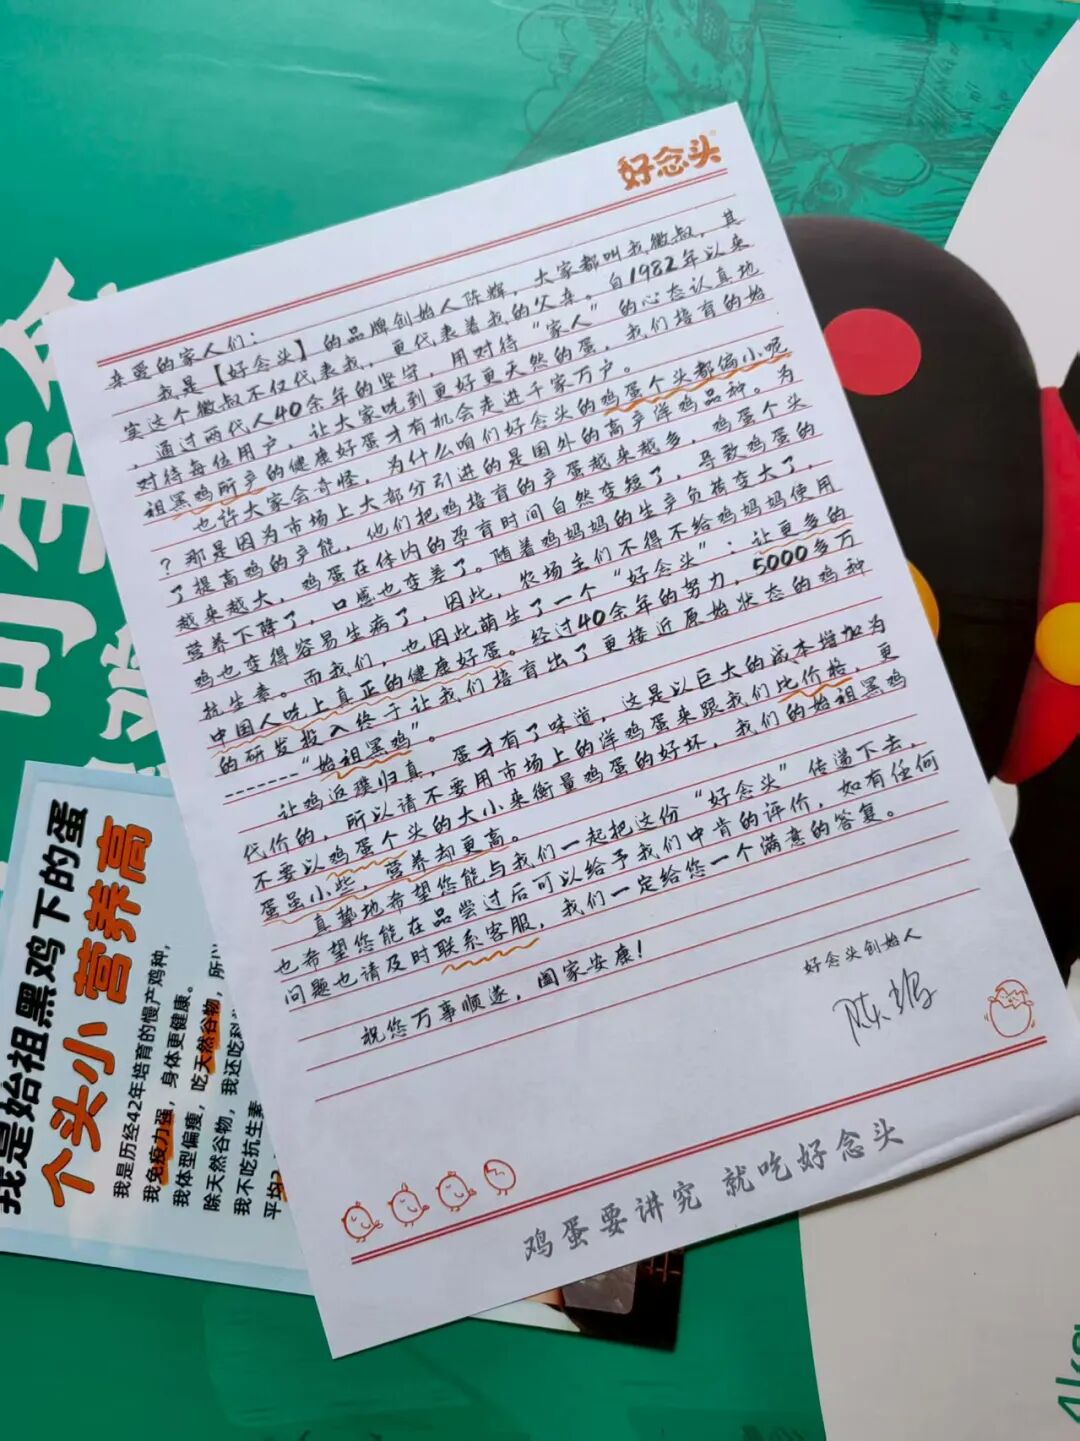 好念头
亲爱的家人们：
我是【好念头】的品牌创始人陈辉，大家都叫我徽叔，其
实这个徽叔不仅代表我，更代表着我的父亲。自1982年以来
，通过两代人40余年的坚守，用对待“家人”的心态认真地
对待每位用户，让大家吃到更好更天然的蛋，我们培育的始
祖黑鸡所产的健康好蛋才有机会走进千家万户。
也许大家会奇怪，为什么咱们好念头的鸡蛋个头都偏小呢
？那是因为市场上大部分引进的是国外的高产洋鸡品种。为
了提高鸡的产能，他们把鸡培育的产蛋越来越多，鸡蛋个头
越来越大，鸡蛋在体内的孕育时间自然变短了，导致鸡蛋的
营养下降了，口感也变差了。随着鸡妈妈的生产负荷变大了，
鸡也变得容易生病了，因此，农场主们不得不给鸡妈妈使用
抗生素。而我们，也因此萌生了一个“好念头”：让更多的
中国人吃上真正的健康好蛋。经过40余年的努力，5000多万
的研发投入终于让我们培育出了更接近原始状态的鸡种
-------“始祖黑鸡”。
让鸡返璞归真，蛋才有了味道，这是以巨大的成本增加为
代价的，所以请不要用市场上的洋鸡蛋来跟我们比价格，更
不要以鸡蛋个头的大小来衡量鸡蛋的好坏，我们的始祖黑鸡
蛋虽小些，营养却更高。
真挚地希望您能与我们一起把这份“好念头”传递下去，
也希望您能在品尝过后可以给予我们中肯的评价，如有任何
问题也请及时联系客服，我们一定给您一个满意的答复。
祝您万事顺遂，阖家安康！
好念头创始人
鸡蛋要讲究 就吃好念头
我是始祖黑鸡下的蛋
个头小 营养高
我是历经42年培育的慢产鸡种，
我免疫力强，身体更健康。
我体型偏瘦，吃天然谷物，所
除天然谷物，我还吃
我不吃抗生素
平均